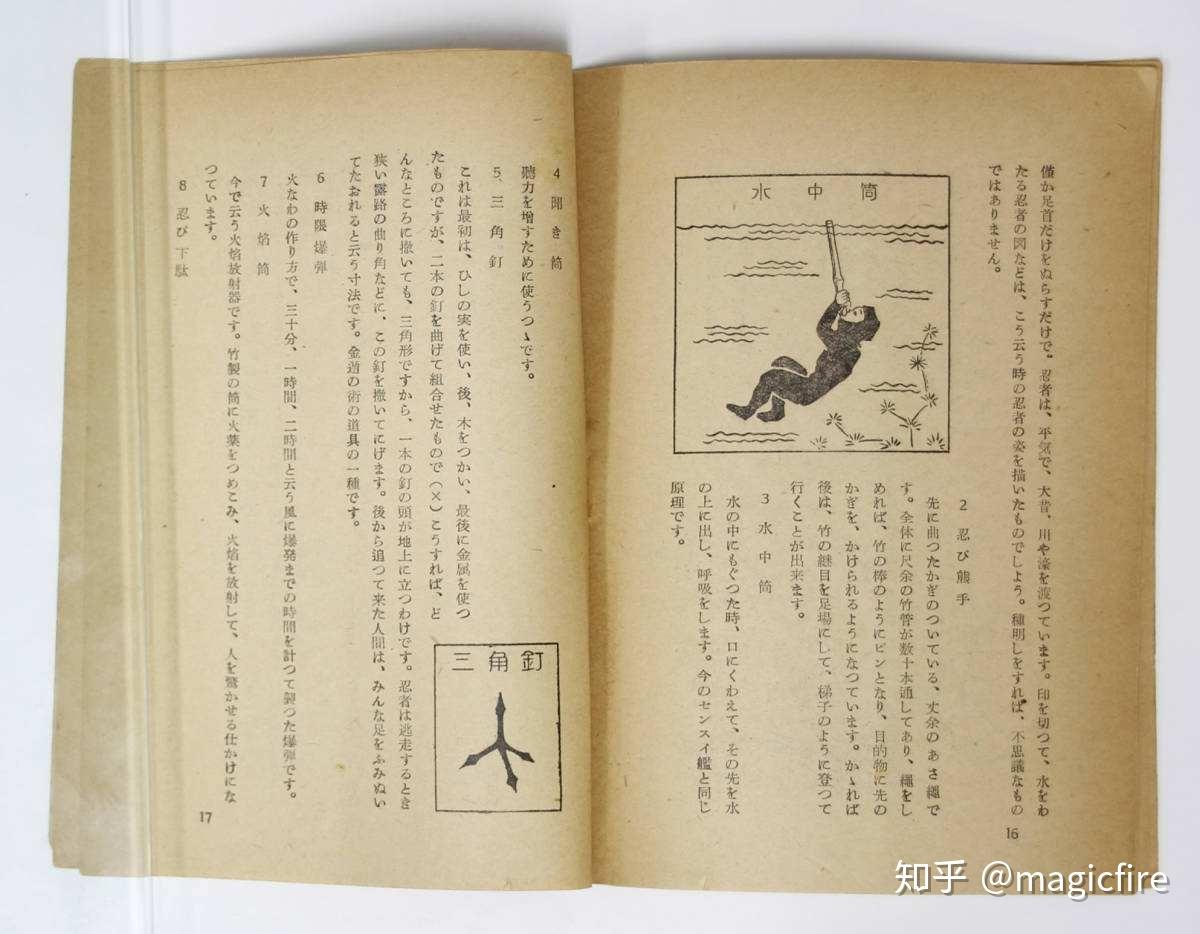 僅か足首だけをぬらすだけで。忍者は、平気で、大昔、川や濠を渡つています。印を切つて、水をわ
たる忍者の図などは、こう云う時の忍者の姿を描いたものでしよう。種明しをすれば、不思議なもの
ではありません。
水中筒
2 忍び熊手
先に曲つたかぎのついている、丈余のあさ縄で
す。全体に尺余の竹管が数十本通してあり、縄をし
めれば、竹の棒のようにピンとなり、目的物に先の
かぎを、かけられるようになつています。かゝれば
後は、竹の継目を足場にして、梯子のように登つて
行くことが出来ます。
3 水中筒
水の中にもぐつた時、口にくわえて、その先を水
の上に出し、呼吸をします。今のセンスイ艦と同じ
原理です。
16
4 聞き筒
聴力を増すために使うつゝです。
5 三角釘
これは最初は、ひしの実を使い、後、木をつかい、最後に金属を使つ
たものですが、二本の釘を曲げて組合せたもので(×)こうすれば、ど
んなところに撒いても、三角形ですから、一本の釘の頭が地上に立つわけです。忍者は逃走するとき
狭い露路の曲り角などに、この釘を撒いてにげます。後から追つて来た人間は、みんな足をふみぬい
てたおれると云う寸法です。金遁の術の道具の一種です。
三角釘
6 時限爆弾
火なわの作り方で、三十分、一時間、二時間と云う風に爆発までの時間を計つて製つた爆弾です。
7 火焰筒
今で云う火焰放射器です。竹製の筒に火薬をつめこみ、火焰を放射して、人を驚かせる仕かけにな
つています。
8 忍び下駄
17
知乎 @magicfire